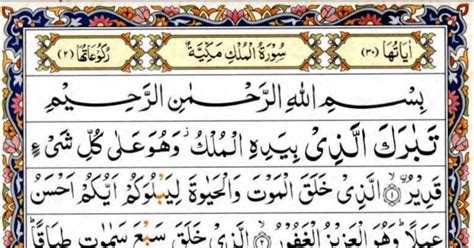 اٰيَاتُهَا (٣٠) سُوْرَةُ الْمُلْكِ مَكِّيَّةٌ رُكُوْعَاتُهَا (٢)
بِسْمِ اللّٰهِ الرَّحْمٰنِ الرَّحِيْمِ
تَبٰرَكَ الَّذِىْ بِيَدِهِ الْمُلْكُ ز وَهُوَ عَلٰى كُلِّ شَىْءٍ
قَدِيْرُ ۙ﴿١﴾ الَّذِىْ خَلَقَ الْمَوْتَ وَالْحَيٰوةَ لِيَبْلُوَكُمْ اَيُّكُمْ اَحْسَنُ
عَمَلًا ؕ وَهُوَ الْعَزِيْزُ الْغَفُوْرُ ۙ﴿٢﴾ الَّذِىْ خَلَقَ سَبْعَ سَمٰوٰتٍ طِبَاقًا ؕ